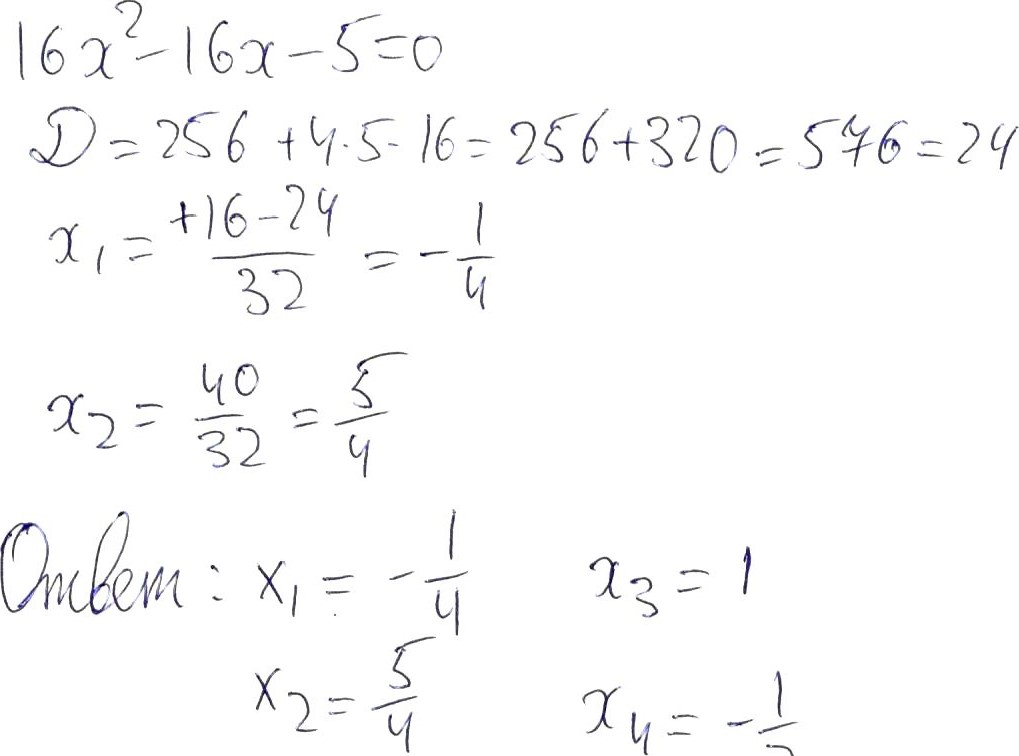 16x² - 16x - 5 = 0
D = 256 + 4·5·16 = 256 + 320 = 576 = 24
x₁ = (+16 - 24)/32 = - 1/4
x₂ = 40/32 = 5/4
Ответ: x₁ = - 1/4 x₃ = 1
x₂ = 5/4 x₄ = - 1/